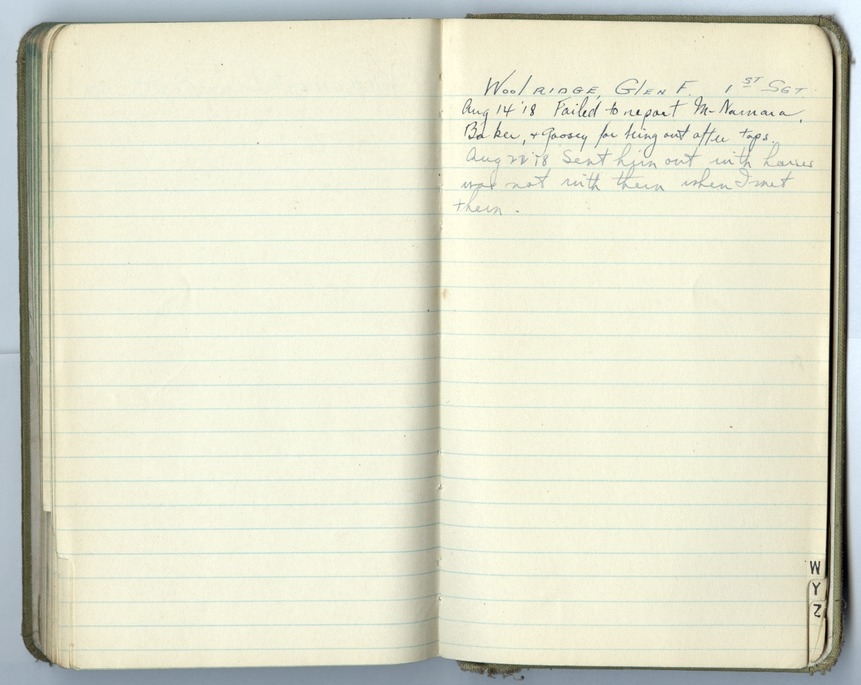 Woolridge, Glen F. 1ST Sgt
Aug 14 '18 Failed to report McNamara,
Baker, & Goosey for being out after taps.
Aug 22 '18 Sent him out with horses
was not with them when I met
them.
W
Y
Z